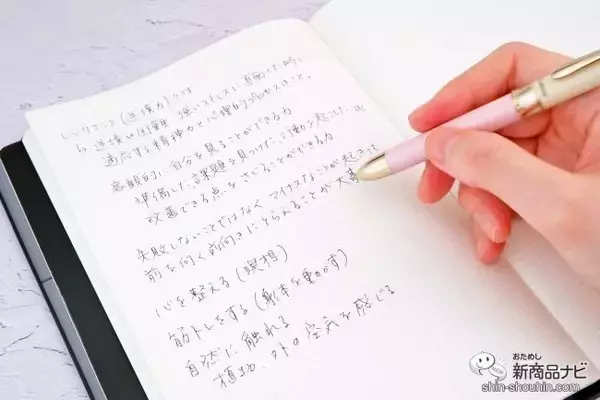 レジリエンス(逆境力)とは
逆境や困難、強いストレスに直面した時に
適応する精神力と心理的プロセスのこと。
客観的に自分を見ることができる力
準備した課題を見つけたり行動を起こしたり
改善できる点をさぐることができる力
失敗しないことではなくマイナスなことが起きても
前を向く 前向きにとらえることが大事
心を整える(瞑想)
筋トレをする(身体を動かす)
自然に触れる
植物、外の空気を感じる
おためし
新商品ナビ
shin-shouhin.com